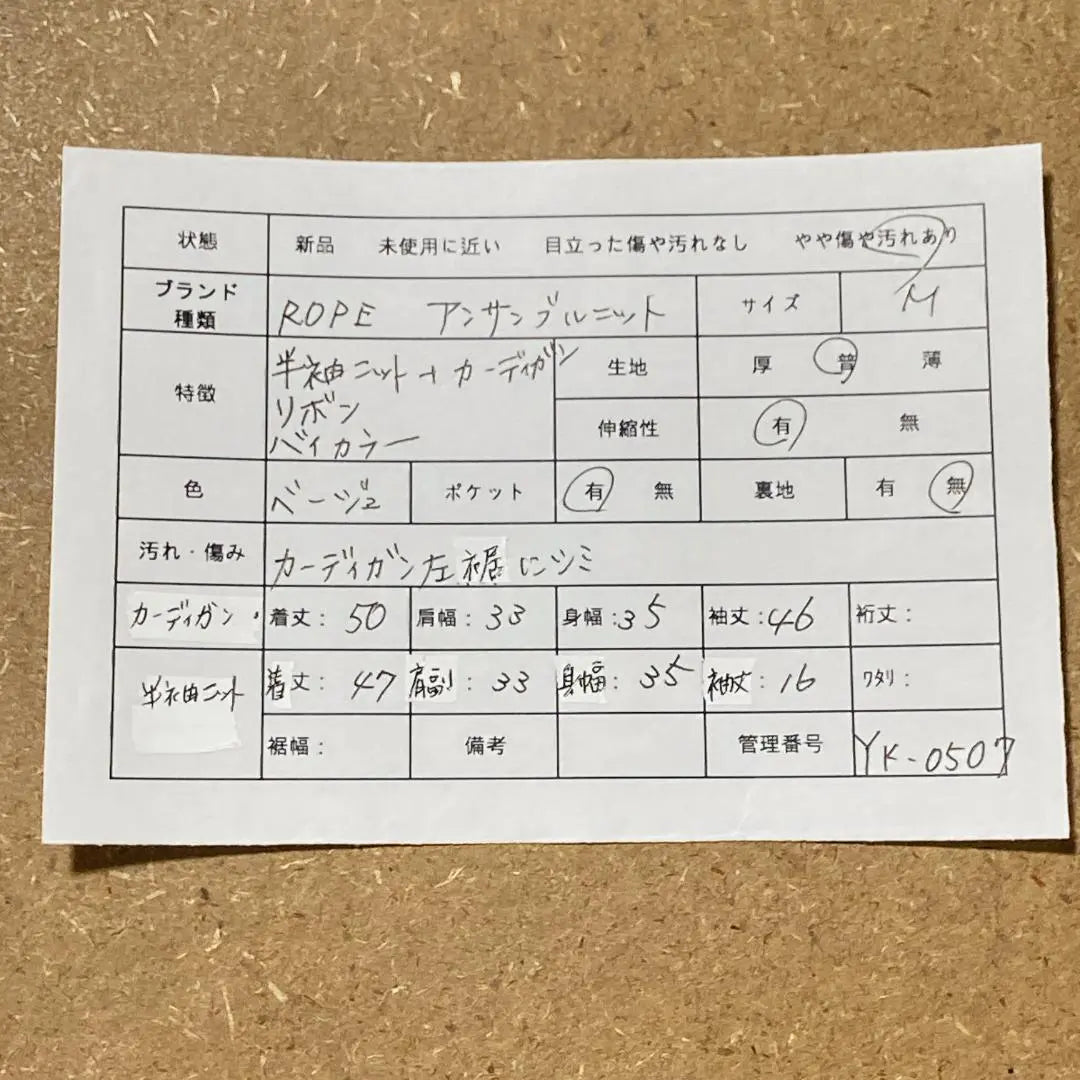 状態 新品 未使用に近い 目立った傷や汚れなし やや傷や汚れあり
ブランド
種類 ROPE アンサンブルニット サイズ M
特徴 半袖ニット+カーディガン
リボン
バイカラー
生地 厚 普 薄
伸縮性 有 無
色 ベージュ ポケット 有 無 裏地 有 無
汚れ・傷み カーディガン左裾にシミ
カーディガン 着丈: 50 肩幅: 33 身幅: 35 袖丈: 46 裄丈:
半袖ニット 着丈: 47 肩幅: 33 身幅: 35 袖丈: 16 ワタリ:
裾幅: 備考 管理番号 YK-0507